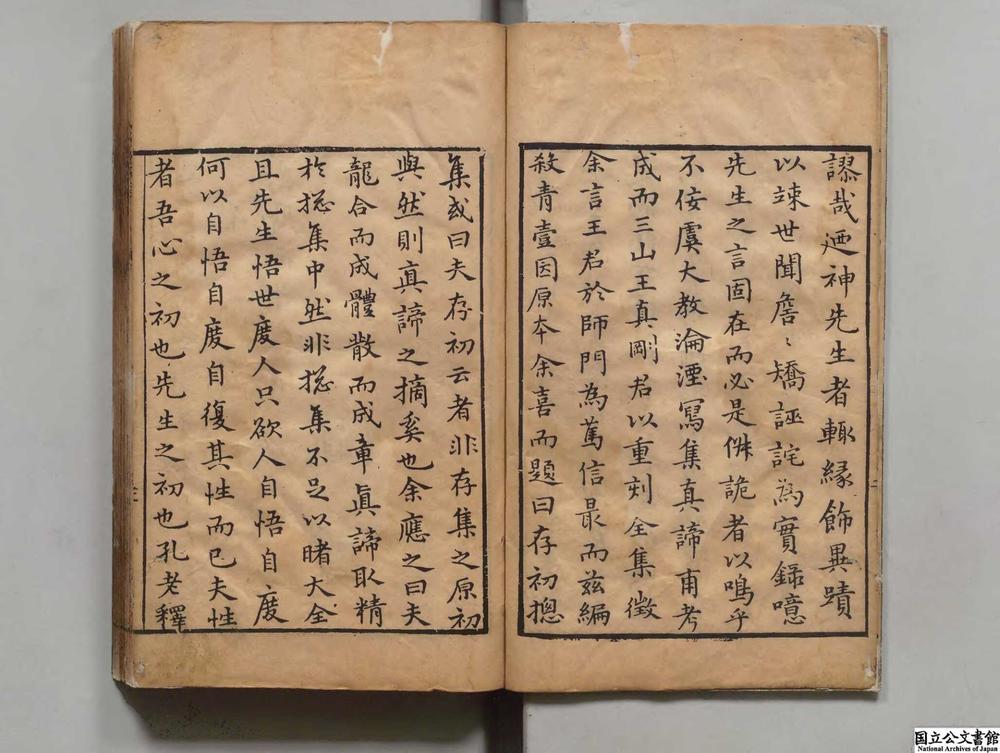 謬哉迺神先生者輙縁飾異蹟
以竦世聞詹〻矯誣詫為實録噫
先生之言固在而必是俶詭者以鳴乎
不佞虞大教淪湮冩集真諦甫考
成而三山王真剛君以重刻全集徵
余言王君於師門為篤信最而兹編
殺青壹因原本余喜而題曰存初摠
集或曰夫存初云者非存集之原初
與然則真諦之摘奚也余應之曰夫
龍合而成體散而成章眞諦取精
於摠集中然非摠集不足以睹大全
且先生悟世度人只欲人自悟自度
何以自悟自度自復其性而已夫性
者吾心之初也先生之初也孔老釋
国立公文書館
National Archives of Japan